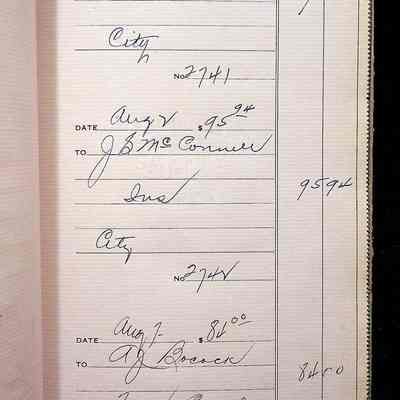 City
No 2741
DATE Aug 2 $ 95 94
TO J B McConnell
Ins 95 94
City
No 2742
DATE Aug 7 $ 84 00
TO A J Bocock
84 00